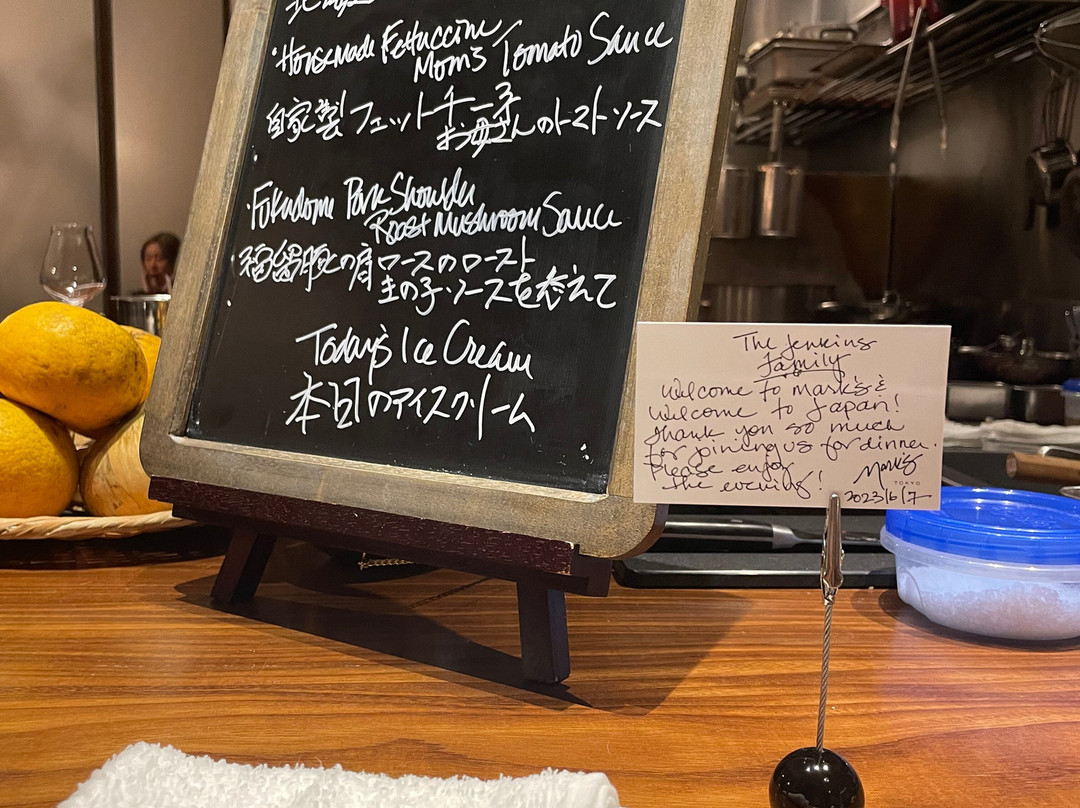 ・Housemade Fettuccine
Mom's Tomato Sauce
自家製フェットチーネ
お母さんのトマトソース
・Fukudome Pork Shoulder
Roast Mushroom Sauce
の肩ロースのロースト
ソースを添えて
Today's Ice Cream
本日のアイスクリーム
The Jenkins
Family
Welcome to Mark's &
Welcome to Japan!
Thank you so much
for joining us for dinner.
Please enjoy
the evening!
Mark's
TOKYO
2023/6/7